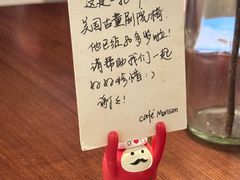 这是一把
美国古董剧院椅
他已经80多岁啦!
请帮助我们一起
好好珍惜:)
谢谢!
café Monson